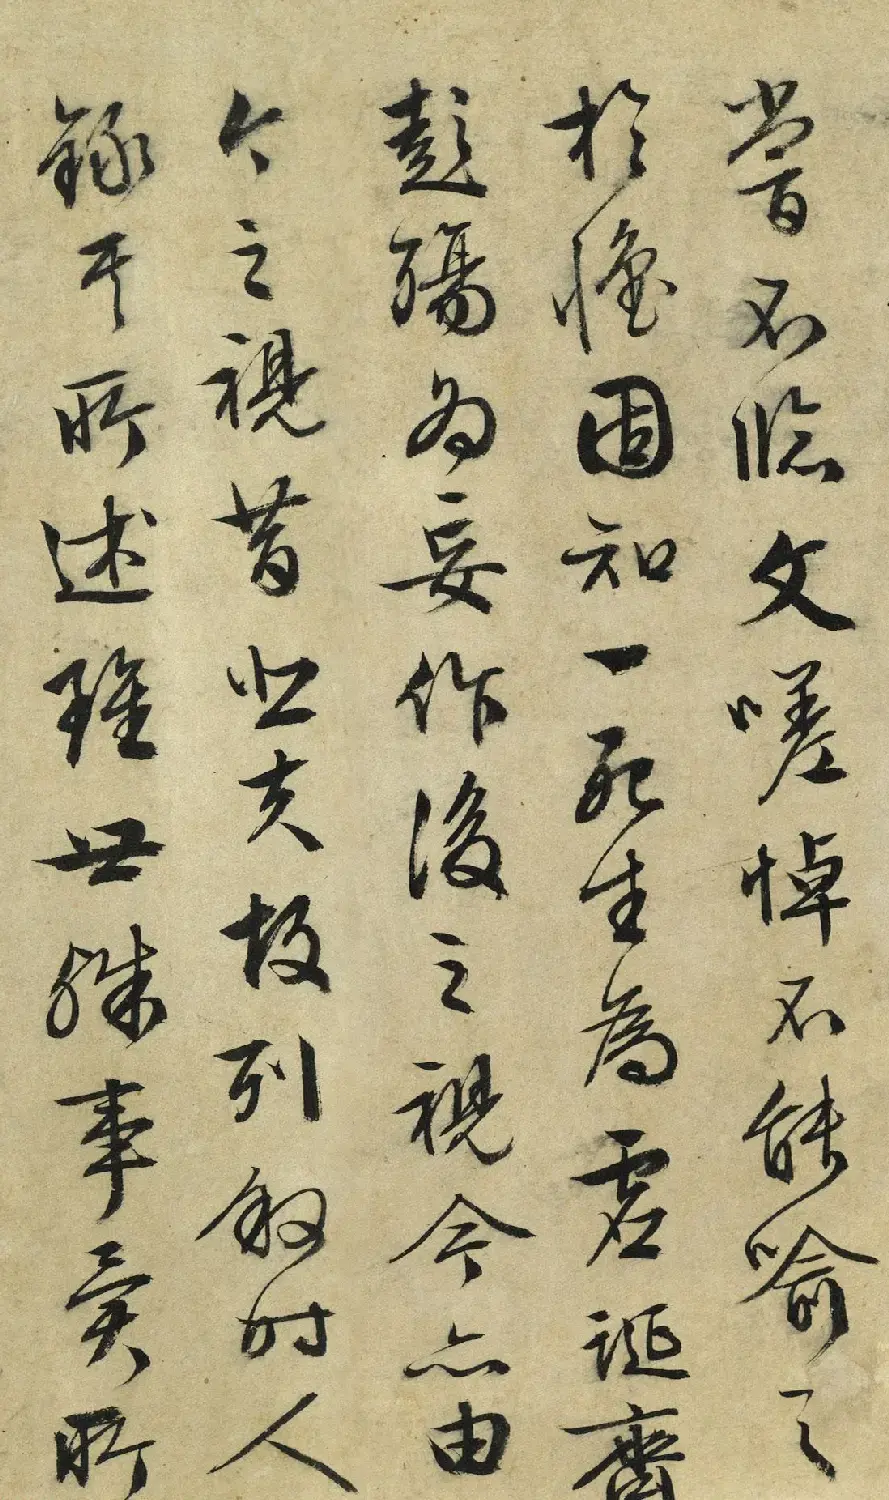 嘗不臨文嗟悼不能喻之
於懷固知一死生為虛誕齊
彭殤為妄作後之視今亦由
今之視昔悲夫故列敘時人
錄其所述雖世殊事異所